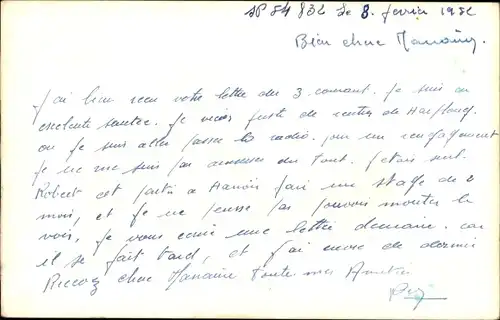 SP 54 832 le 8. fevrier 1952
Bien chere Marraine,
J'ai bien recu votre lettre du 3 courant. je suis en
excelente sante. Je viens juste de rentrer de Haiphong
ou je suis aller passer la radio. pour un rengagement
je ne me suis pas amuser du tout. J'etais seul.
Robert est partis a Hanoi fair un stage de 2
mois, et je ne pense pas pouvoir monter le
voir, je vous ecrire une lettre demain. car
il se fait tard, et j'ai envie de dormir
Recevez chere Marraine toute mes Amitie